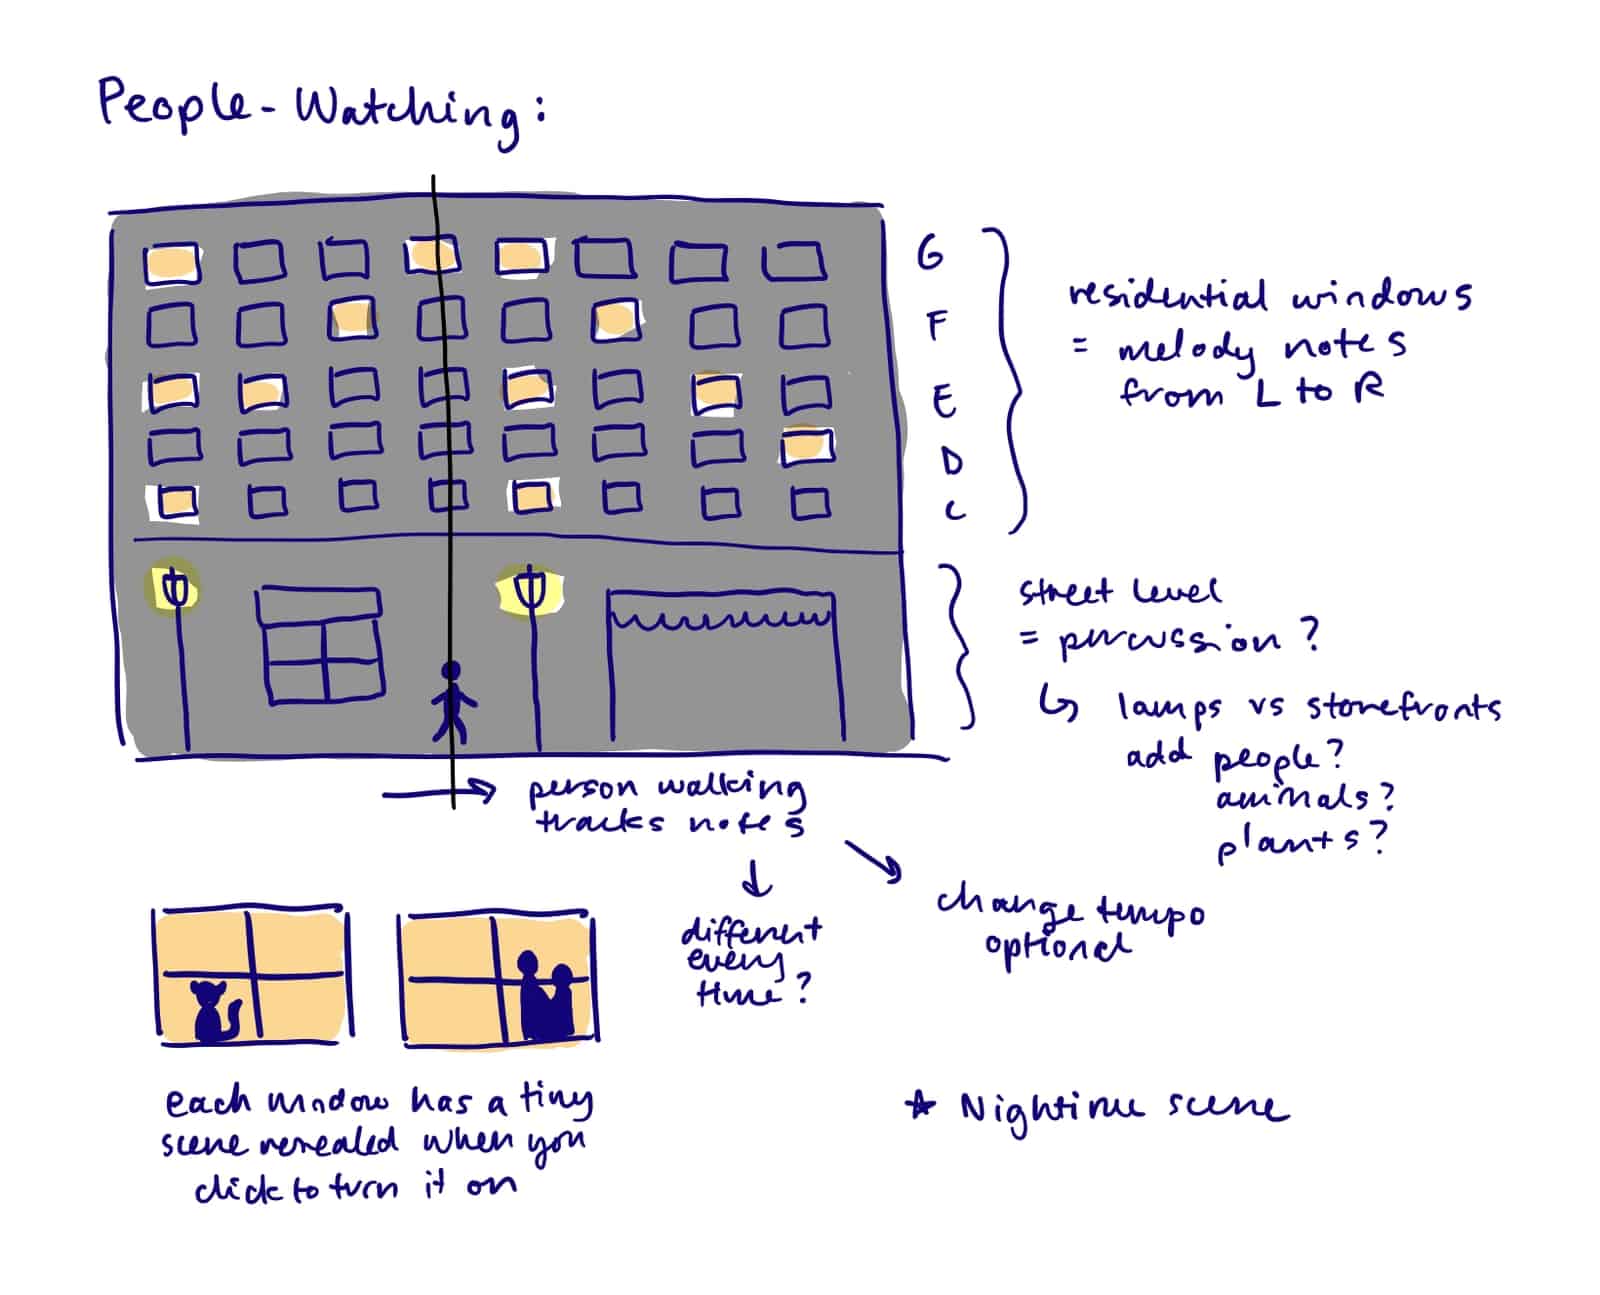 People-Watching:
G
F
E
D
C
residential windows
= melody notes
from L to R
street level
= percussion?
lamps vs storefronts
add people?
animals?
plants?
person walking
tracks notes
different
every
time?
change tempo
optional
each window has a tiny
scene revealed when you
click to turn it on
★ Nightime scene